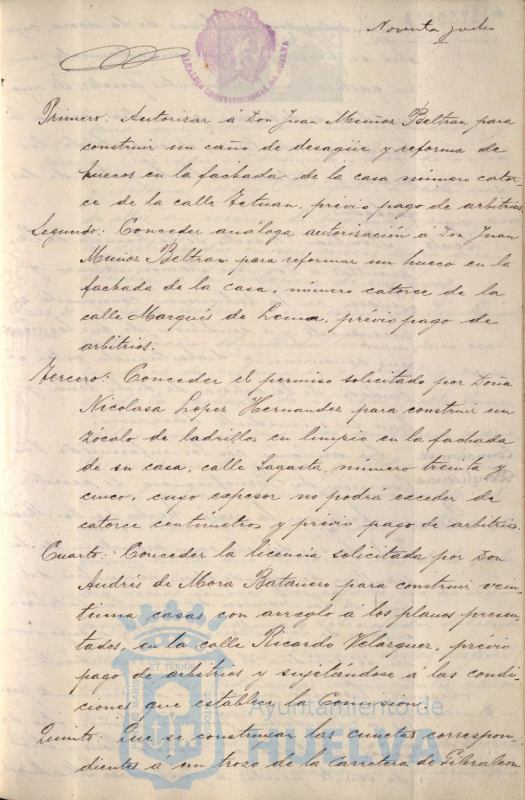 Noventa y
ALCALDIA CONSTITUCIONAL DE HUELVA
Primero: Autorisar á Don Juan Muñoz Beltran para
construir un caño de desagüe y reforma de
huecos en la fachada de la casa número cator
ce de la calle Tetuan, prévio pago de arbitrios.
Segundo: Conceder análoga autorización á Don Juan
Muñoz Beltran para reformar un hueco en la
fachada de la casa, número catorce de la
calle Marqués de Lema, prévio pago de
arbitrios.
Tercero: Conceder el permiso solicitado por Doña
Nicolasa Lopez Hernandez para construir un
zócalo de ladrillos en limpio en la fachada
de su casa, calle Sagasta, número treinta y
cinco, cuyo espesor no podrá exceder de
catorce centímetros y prévio pago de arbitrios.
Cuarto: Conceder la licencia solicitada por Don
Andrés de Mora Batanero para construir vein
tiuna casas con arreglo á los planos presen
tados, en la calle Ricardo Velazquez, prévio
pago de arbitrios y sujetándose á las condi
ciones que establece la Comisión.
Quinto: Que se construyan las cunetas correspon
dientes á un trozo de la carretera de Gibraleon
Ayuntamiento de
HUELVA